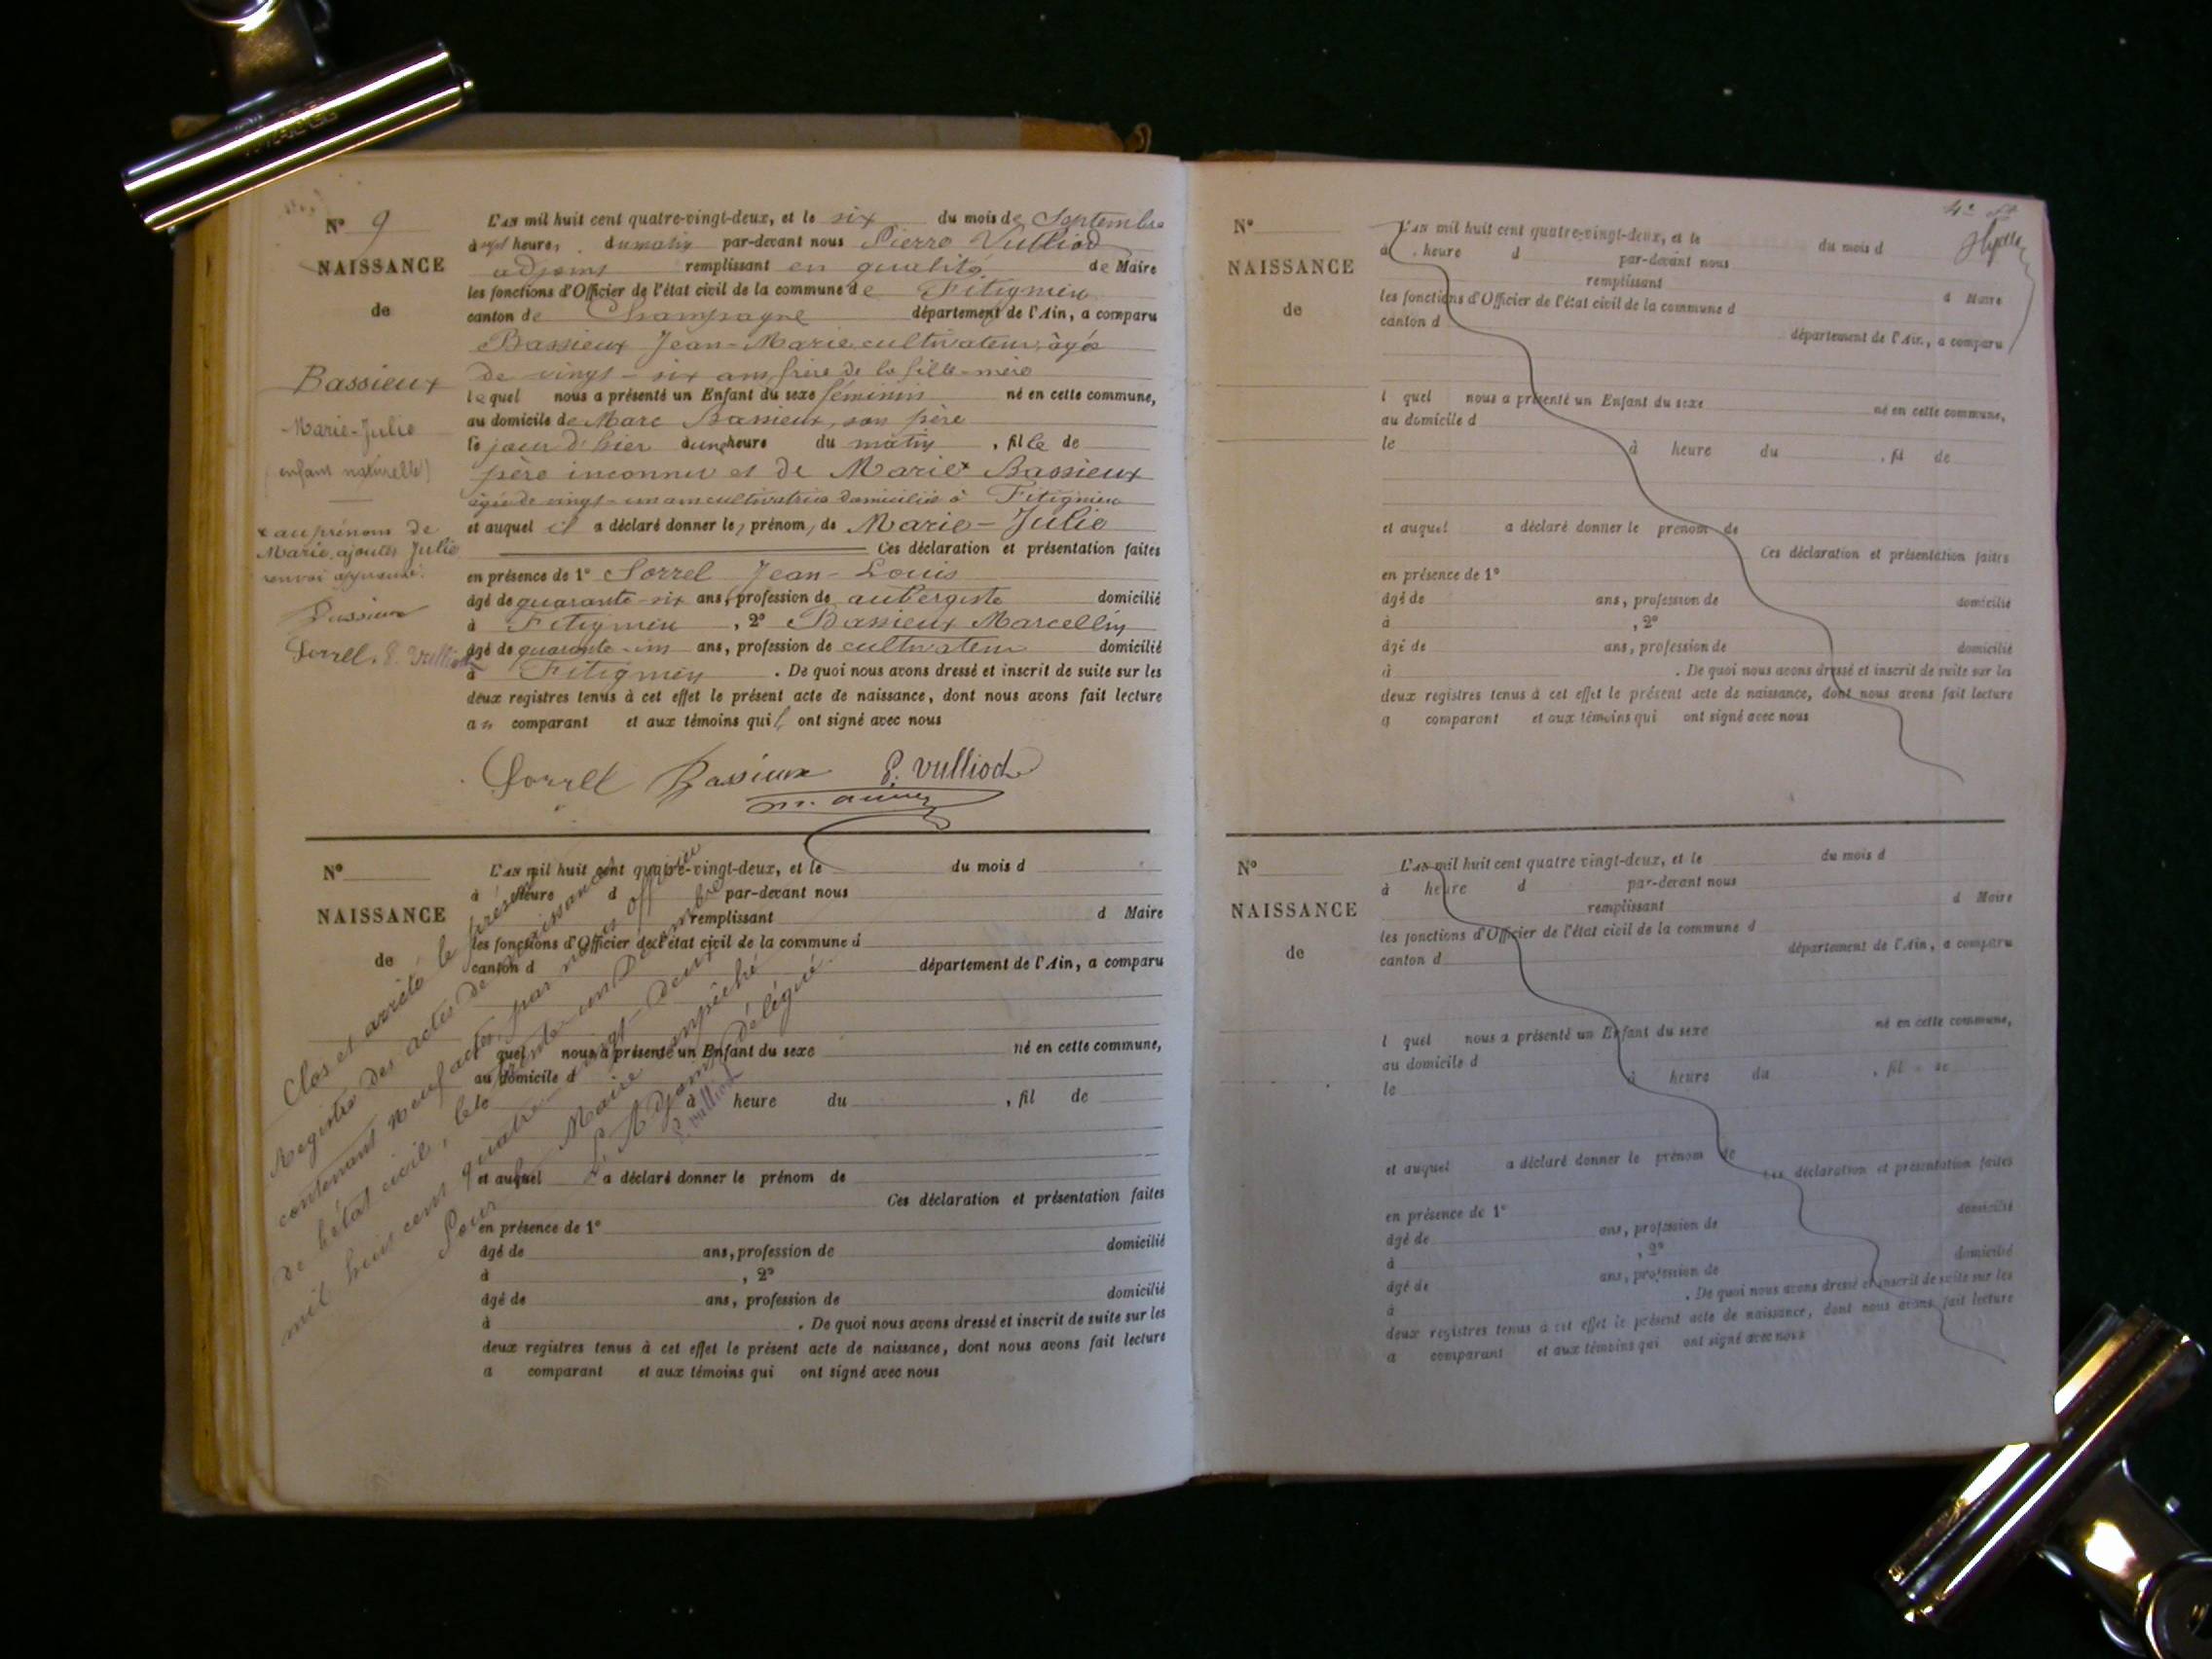 N° 9
NAISSANCE
de
Bassieux
Marie-Julie
(enfant naturelle)
x au prénom de
Marie, ajoutez Julie
renvoi approuvé.
Bassieux
Sorrel. P. Vulliod
L'AN mil huit cent quatre-vingt-deux, et le six du mois de Septembre
à sept heures, du matin par-devant nous Pierre Vulliod
adjoint remplissant en qualité de Maire
les fonctions d'Officier de l'état civil de la commune de Fitignieu
canton de Champagne département de l'Ain, a comparu
Bassieux Jean-Marie, cultivateur, âgé
de vingt-six ans, frère de la fille-mère
lequel nous a présenté un Enfant du sexe féminin né en cette commune,
au domicile de Marc Bassieux, son père
le jour d'hier à une heure du matin, fille de
père inconnu et de Marie x Bassieux
âgée de vingt-un ans cultivatrice domiciliée à Fitignieu
et auquel il a déclaré donner le, prénom, de Marie-Julie
Ces déclaration et présentation faites
en présence de 1° Sorrel Jean-Louis
âgé de quarante-six ans, profession de aubergiste domicilié
à Fitignieu, 2° Bassieux Marcellin
âgé de quarante-un ans, profession de cultivateur domicilié
à Fitignieu. De quoi nous avons dressé et inscrit de suite sur les
deux registres tenus à cet effet le présent acte de naissance, dont nous avons fait lecture
au comparant et aux témoins qui ont signé avec nous
Sorrel Bassieux P. Vulliod
N°
NAISSANCE
de
L'AN mil huit cent quatre-vingt-deux, et le du mois d
à heure d par-devant nous
remplissant d Maire
les fonctions d'Officier de l'état civil de la commune d
canton d département de l'Ain, a comparu
l quel nous a présenté un Enfant du sexe né en cette commune,
au domicile d
le à heure du , fil de
et auquel a déclaré donner le prénom de
Ces déclaration et présentation faites
en présence de 1°
âgé de ans, profession de domicilié
à , 2°
âgé de ans, profession de domicilié
à . De quoi nous avons dressé et inscrit de suite sur les
deux registres tenus à cet effet le présent acte de naissance, dont nous avons fait lecture
a comparant et aux témoins qui ont signé avec nous
Clos et arrêté le présent
Registre des actes de naissance
contenant neuf actes, par nous officier
de l'état civil, le trente un Décembre
mil huit cent quatre-vingt-deux
Pour Maire empêché
L'Adjoint délégué.
P. Vulliod
N°
NAISSANCE
de
L'AN mil huit cent quatre-vingt-deux, et le du mois d
à heure d par-devant nous
remplissant d Maire
les fonctions d'Officier de l'état civil de la commune d
canton d département de l'Ain, a comparu
l quel nous a présenté un Enfant du sexe né en cette commune,
au domicile d
le à heure du , fil de
et auquel a déclaré donner le prénom de
Ces déclaration et présentation faites
en présence de 1°
âgé de ans, profession de domicilié
à , 2°
âgé de ans, profession de domicilié
à . De quoi nous avons dressé et inscrit de suite sur les
deux registres tenus à cet effet le présent acte de naissance, dont nous avons fait lecture
a comparant et aux témoins qui ont signé avec nous
N°
NAISSANCE
de
L'AN mil huit cent quatre-vingt-deux, et le du mois d
à heure d par-devant nous
remplissant d Maire
les fonctions d'Officier de l'état civil de la commune d
canton d département de l'Ain, a comparu
l quel nous a présenté un Enfant du sexe né en cette commune,
au domicile d
le à heure du , fil de
et auquel a déclaré donner le prénom de
Ces déclaration et présentation faites
en présence de 1°
âgé de ans, profession de domicilié
à , 2°
âgé de ans, profession de domicilié
à . De quoi nous avons dressé et inscrit de suite sur les
deux registres tenus à cet effet le présent acte de naissance, dont nous avons fait lecture
a comparant et aux témoins qui ont signé avec nous